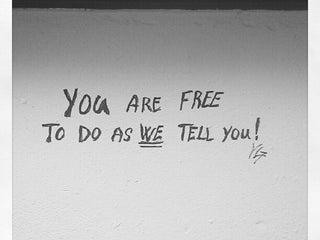 YOU ARE FREE
TO DO AS WE TELL YOU!